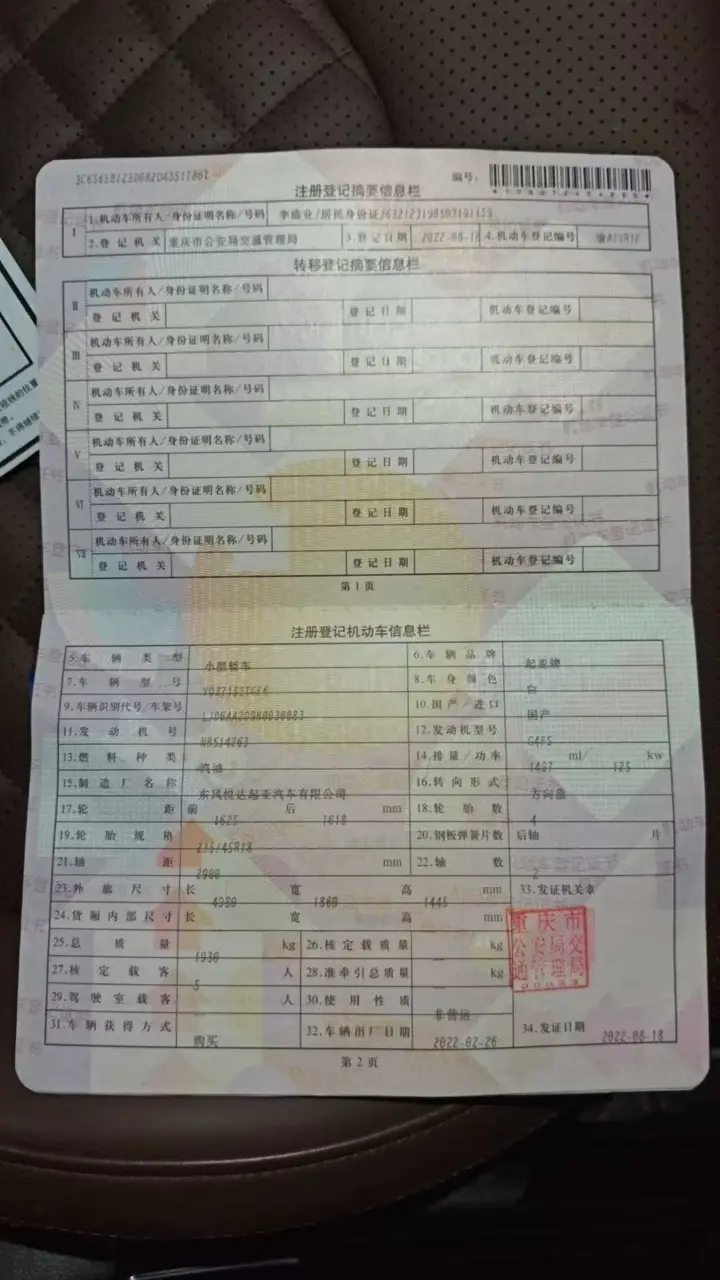 编号:
注册登记摘要信息栏
I 1.机动车所有人/身份证明名称/号码
2.登记机关 重庆市公安局交通管理局 3.登记日期 2022-08-18 4.机动车登记编号
转移登记摘要信息栏
II 机动车所有人/身份证明名称/号码
登记机关 登记日期 机动车登记编号
III 机动车所有人/身份证明名称/号码
登记机关 登记日期 机动车登记编号
IV 机动车所有人/身份证明名称/号码
登记机关 登记日期 机动车登记编号
V 机动车所有人/身份证明名称/号码
登记机关 登记日期 机动车登记编号
VI 机动车所有人/身份证明名称/号码
登记机关 登记日期 机动车登记编号
VII 机动车所有人/身份证明名称/号码
登记机关 登记日期 机动车登记编号
第1页
注册登记机动车信息栏
5.车辆类型 小型轿车 6.车辆品牌 起亚牌
7.车辆型号 8.车身颜色 白
9.车辆识别代号/车架号 10.国产/进口 国产
11.发动机号 12.发动机型号
13.燃料种类 汽油 14.排量/功率 ml/ kw
15.制造厂名称 东风悦达起亚汽车有限公司 16.转向形式 方向盘
17.轮距 前 后 mm 18.轮胎数 4
19.轮胎规格 20.钢板弹簧片数 后轴 片
21.轴距 mm 22.轴数 2
23.外廓尺寸 长 宽 高 mm 33.发证机关章
24.货厢内部尺寸 长 宽 高 mm
重庆市
公安局交
通管理局
25.总质量 1930 kg 26.核定载质量 kg
27.核定载客 5 人 28.准牵引总质量 kg
29.驾驶室载客 人 30.使用性质 非营运
31.车辆获得方式 购买 32.车辆出厂日期 2022-02-26 34.发证日期 2022-08-18
第2页